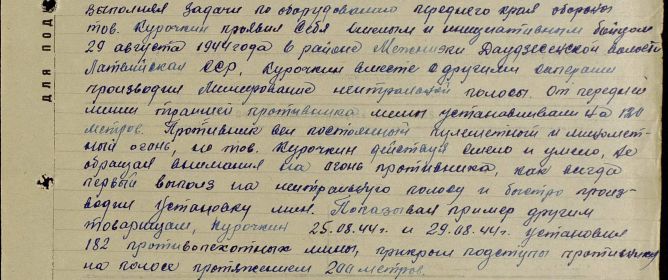 Выполняя задачи по оборудованию переднего края обороны
тов. Курочкин проявил себя смелым и инициативным бойцом
29 августа 1944 года в районе Даудзесской волости
Латвийская ССР, Курочкин вместе с другими саперами
производил минирование нейтральной полосы. От передней
линии траншей противника мины устанавливали на 120
метров. Противник вел постоянный пулеметный и миномет-
ный огонь, но тов. Курочкин действуя смело и умело, не
обращая внимания на огонь противника, как всегда
первый выполз на нейтральную полосу и быстро произ-
водил установку мин. Показывая пример другим
товарищам, Курочкин 25.08.44г. и 29.08.44г. установил
182 противопехотных мины, прикрыл подступы противнику
на полосе протяжением 200 метров.
ДЛЯ ПОД